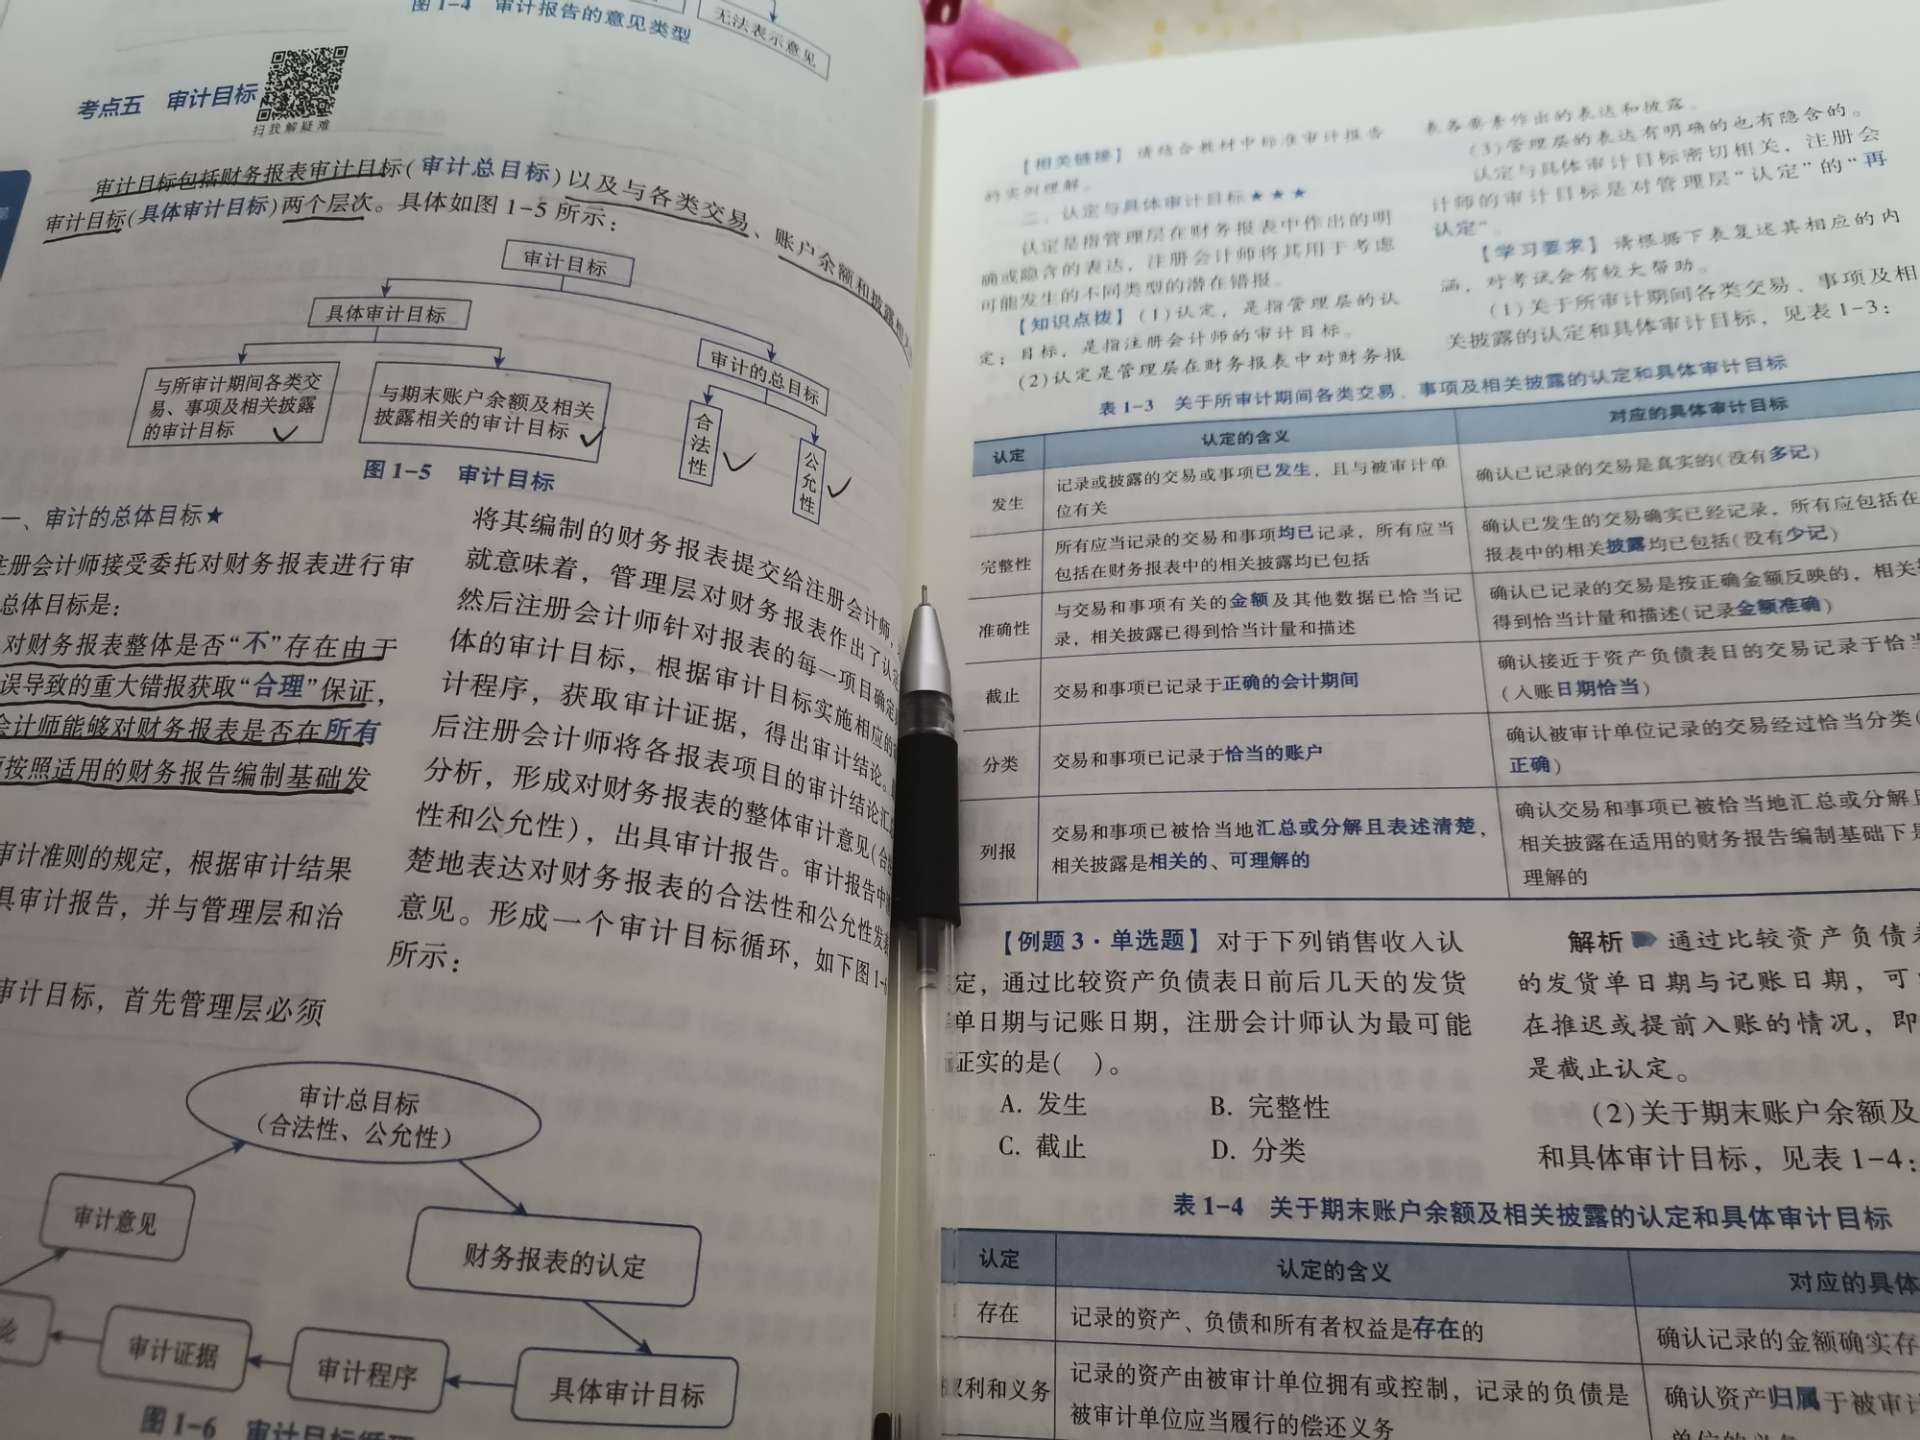 图1-4 审计报告的意见类型
无法表示意见
考点五 审计目标
扫我解疑难
审计目标包括财务报表审计目标(审计总目标)以及与各类交易、账户余额和披露相关
审计目标(具体审计目标)两个层次。具体如图1-5所示：
审计目标
具体审计目标
审计的总目标
与所审计期间各类交
易、事项及相关披露
的审计目标
与期末账户余额及相关
披露相关的审计目标
合法性
公允性
图1-5 审计目标
一、审计的总体目标★
注册会计师接受委托对财务报表进行审
总体目标是：
对财务报表整体是否“不”存在由于
误导致的重大错报获取“合理”保证，
会计师能够对财务报表是否在所有
按照适用的财务报告编制基础发
审计准则的规定，根据审计结果
具审计报告，并与管理层和治
审计目标，首先管理层必须
将其编制的财务报表提交给注册会计师，
就意味着，管理层对财务报表作出了认定
然后注册会计师针对报表的每一项目确定
体的审计目标，根据审计目标实施相应的
计程序，获取审计证据，得出审计结论。
后注册会计师将各报表项目的审计结论汇
分析，形成对财务报表的整体审计意见(合
性和公允性)，出具审计报告。审计报告中
楚地表达对财务报表的合法性和公允性发
意见。形成一个审计目标循环，如下图1-
所示：
审计总目标
(合法性、公允性)
审计意见
财务报表的认定
论
审计证据
审计程序
具体审计目标
图1-6 审计目标循环
【相关链接】 请结合教材中标准审计报告
的实例理解。
二、认定与具体审计目标★★★
认定是指管理层在财务报表中作出的明
确或隐含的表达，注册会计师将其用于考虑
可能发生的不同类型的潜在错报。
【知识点拨】(1)认定，是指管理层的认
定；目标，是指注册会计师的审计目标。
(2)认定是管理层在财务报表中对财务报
表各要素作出的表达和披露。
(3)管理层的表达有明确的也有隐含的。
认定与具体审计目标密切相关，注册会
计师的审计目标是对管理层“认定”的“再
认定”。
【学习要求】 请根据下表复述其相应的内
涵，对考试会有较大帮助。
(1)关于所审计期间各类交易、事项及相
关披露的认定和具体审计目标，见表1-3：
表1-3 关于所审计期间各类交易、事项及相关披露的认定和具体审计目标
认定 认定的含义 对应的具体审计目标
发生 记录或披露的交易或事项已发生，且与被审计单
位有关
确认已记录的交易是真实的(没有多记)
完整性 所有应当记录的交易和事项均已记录，所有应当
包括在财务报表中的相关披露均已包括
确认已发生的交易确实已经记录，所有应包括在
报表中的相关披露均已包括(没有少记)
准确性 与交易和事项有关的金额及其他数据已恰当记
录，相关披露已得到恰当计量和描述
确认已记录的交易是按正确金额反映的，相关
得到恰当计量和描述(记录金额准确)
截止 交易和事项已记录于正确的会计期间
确认接近于资产负债表日的交易记录于恰当
(入账日期恰当)
分类 交易和事项已记录于恰当的账户
确认被审计单位记录的交易经过恰当分类(
正确)
列报 交易和事项已被恰当地汇总或分解且表述清楚，
相关披露是相关的、可理解的
确认交易和事项已被恰当地汇总或分解且
相关披露在适用的财务报告编制基础下是
理解的
【例题3·单选题】 对于下列销售收入认
定，通过比较资产负债表日前后几天的发货
单日期与记账日期，注册会计师认为最可能
证实的是( )。
A. 发生 B. 完整性
C. 截止 D. 分类
解析 通过比较资产负债表
的发货单日期与记账日期，可
在推迟或提前入账的情况，即
是截止认定。
(2)关于期末账户余额及
和具体审计目标，见表1-4：
表1-4 关于期末账户余额及相关披露的认定和具体审计目标
认定 认定的含义 对应的具体
存在 记录的资产、负债和所有者权益是存在的 确认记录的金额确实存
权利和义务 记录的资产由被审计单位拥有或控制，记录的负债是
被审计单位应当履行的偿还义务
确认资产归属于被审计